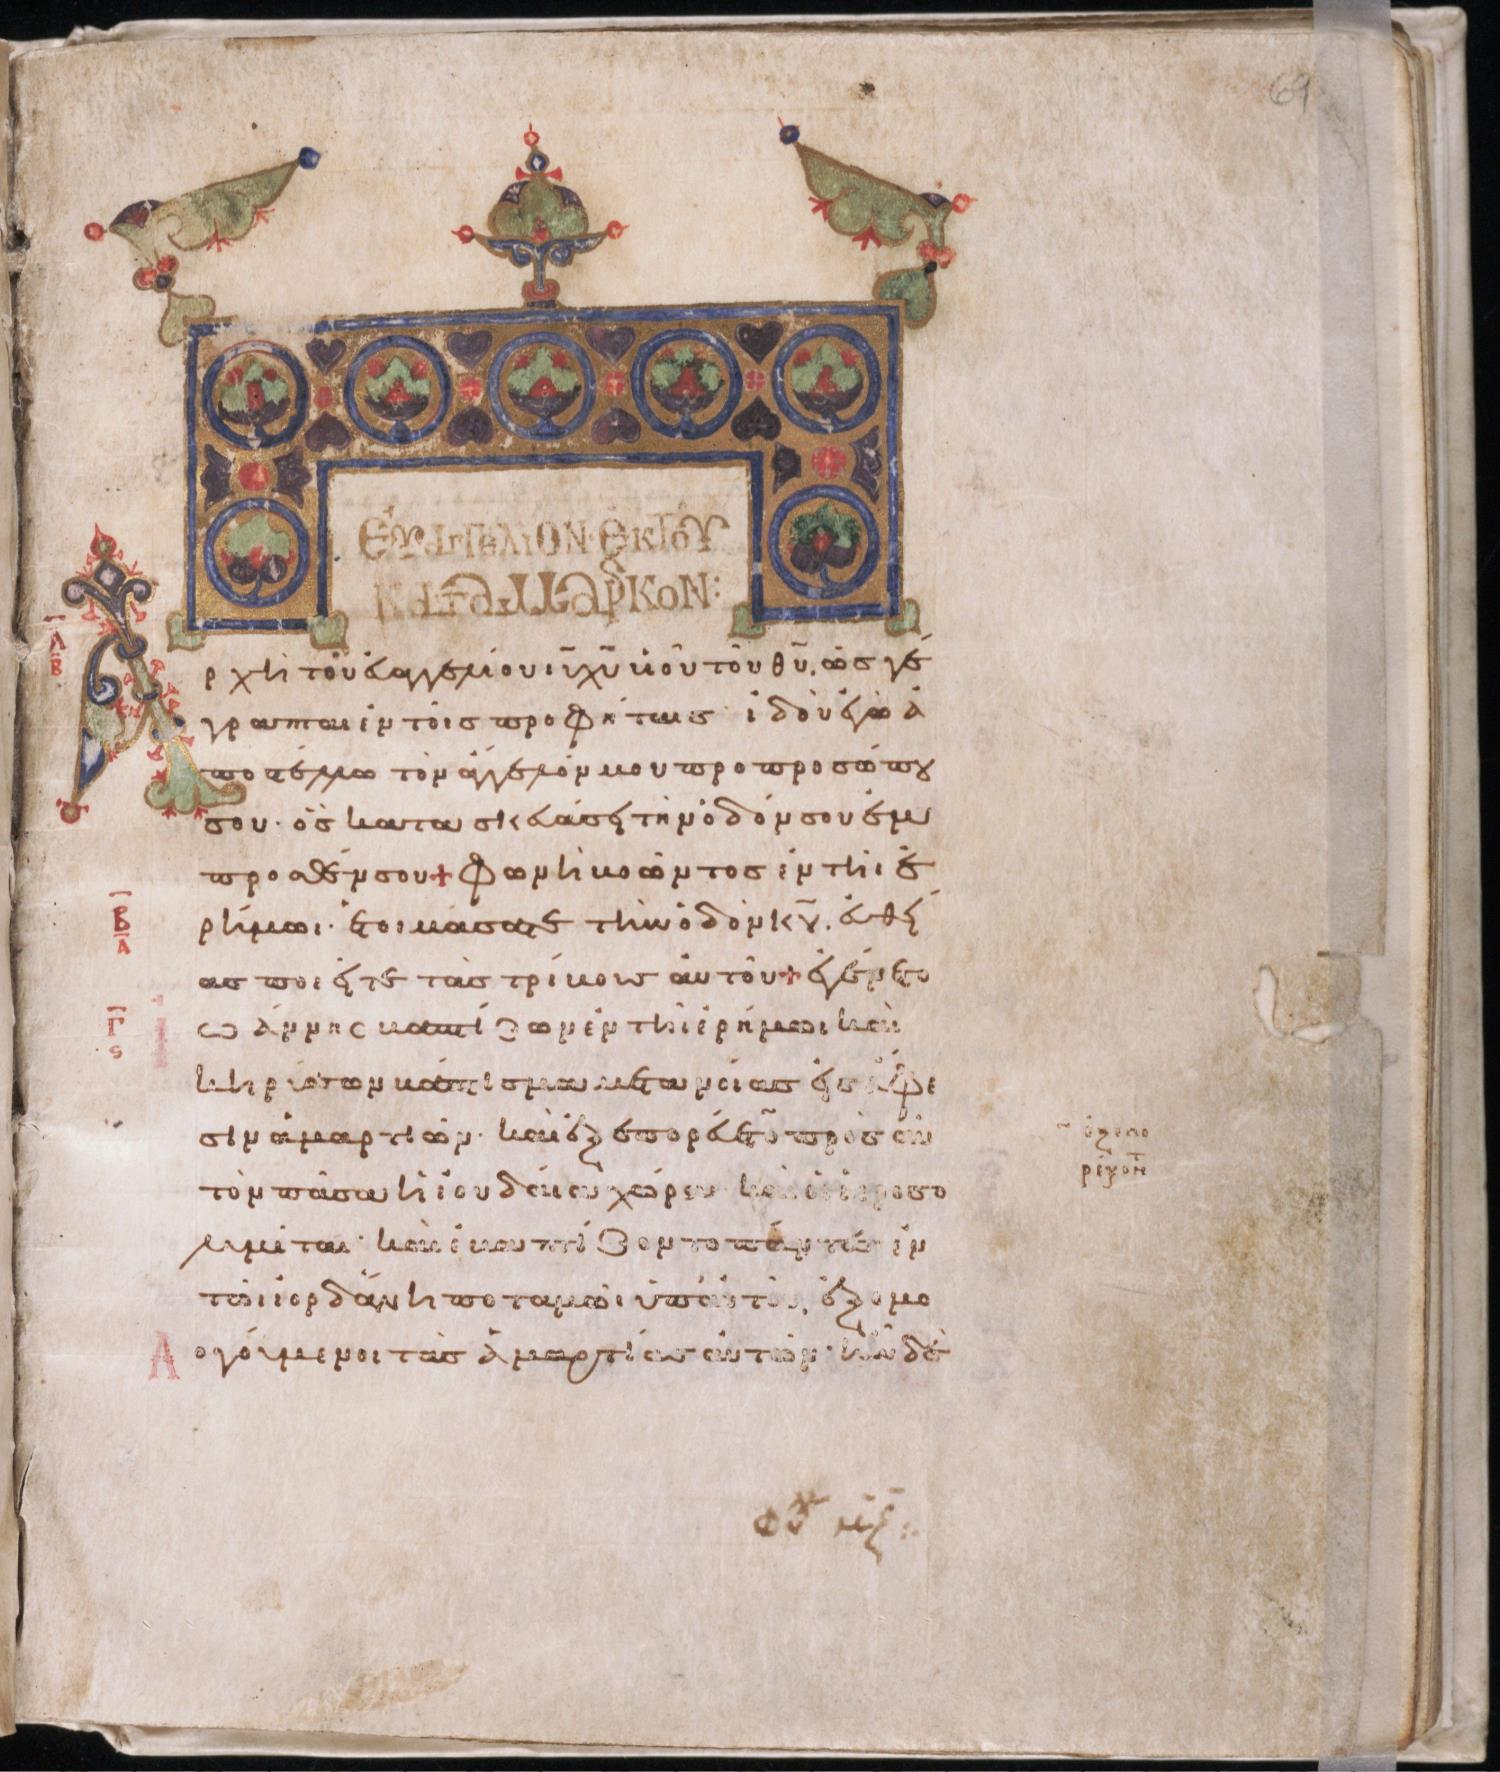 69
ΕΥΑΓΓΕΛΙΟΝ ΕΚ ΤΟΥ
ΚΑΤΑ ΜΑΡΚΟΝ:
Α
Β
Αρχὴ τοῦ εὐαγγελίου ιῦ χῦ υἱοῦ τοῦ θῦ, ὡς γέ
γραπται ἐν τοῖς προφήταις· ἰδοὺ ἐγὼ ἀ
ποστέλλω τὸν ἄγγελόν μου πρὸ προσώπου
σου· ὃς κατασκευάσει τὴν ὁδόν σου ἔμ
προσθέν σου + Φωνὴ βοῶντος ἐν τῆι ἐ
Β
Α
ρήμωι· ἑτοιμάσατε τὴν ὁδὸν κῦ, εὐθεί
ας ποιεῖτε τὰς τρίβους αὐτοῦ + ἐγένετο
Γ
ς
Ἰωάννης βαπτίζων ἐν τῆι ἐρήμωι καὶ
κηρύσσων βάπτισμα μετανοίας εἰς ἄφε
σιν ἁμαρτιῶν· καὶ ἐξεπορεύετο πρὸς αὐ
τὸν πᾶσα ἡ ἰουδαία χώρα καὶ οἱ ἱεροσο
λυμῖται· καὶ ἐβαπτίζοντο πάντες ἐν
τῶι ἰορδάνη ποταμῶι ὑπ' αὐτοῦ, ἐξομο
λογούμενοι τὰς ἁμαρτίας αὐτῶν· ἦν δὲ